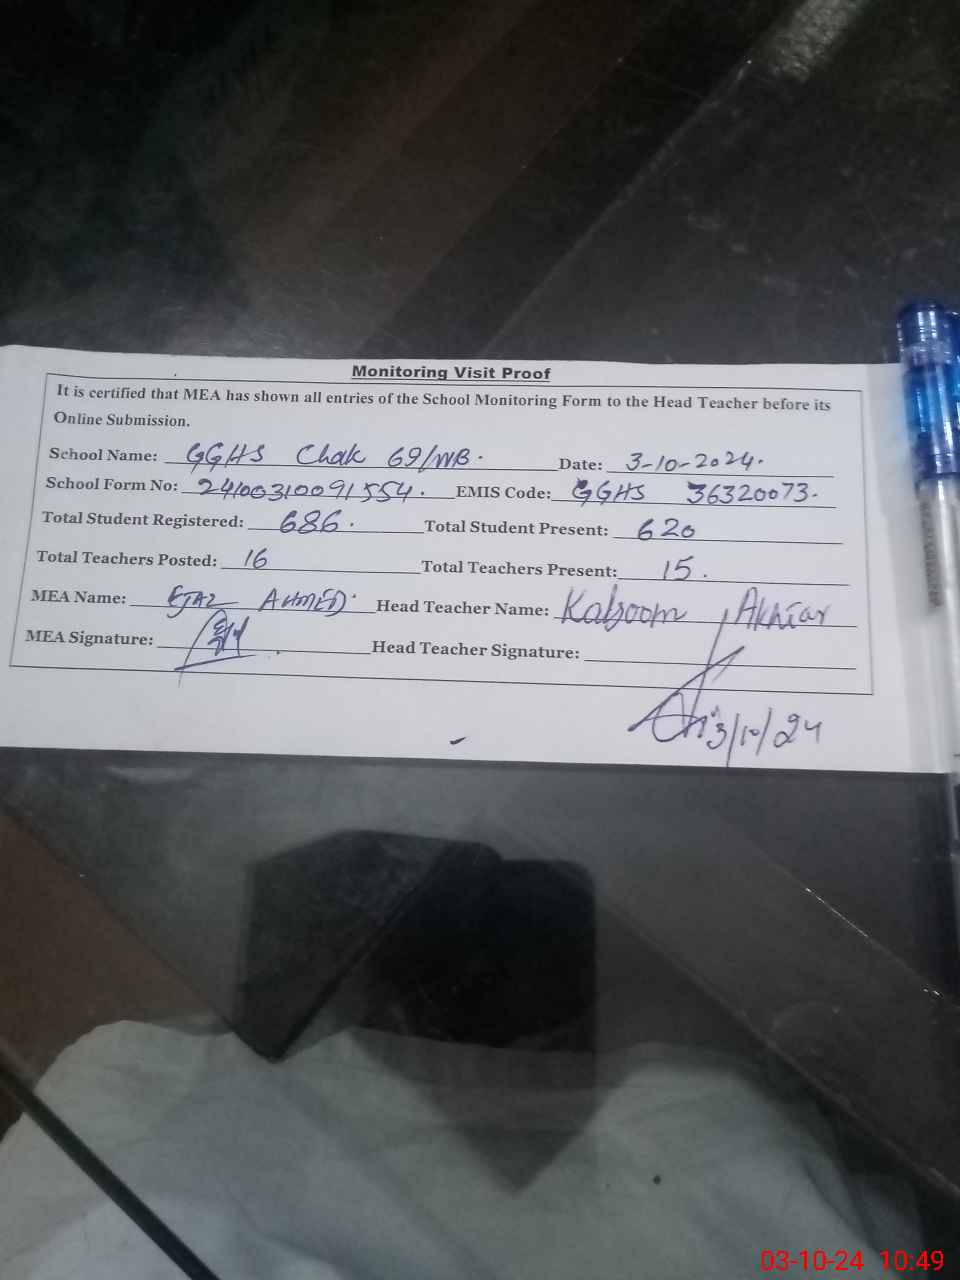 Monitoring Visit Proof
It is certified that MEA has shown all entries of the School Monitoring Form to the Head Teacher before its
Online Submission.
School Name: GGHS Chak 69/WB. Date: 3-10-2024.
School Form No: 24100310091554. EMIS Code: GGHS 36320073.
Total Student Registered: 686. Total Student Present: 620
Total Teachers Posted: 16 Total Teachers Present: 15.
MEA Name: EJAZ AHMED. Head Teacher Name: Kalsoom Akhtar
MEA Signature: Head Teacher Signature:
3/10/24
03-10-24 10:49